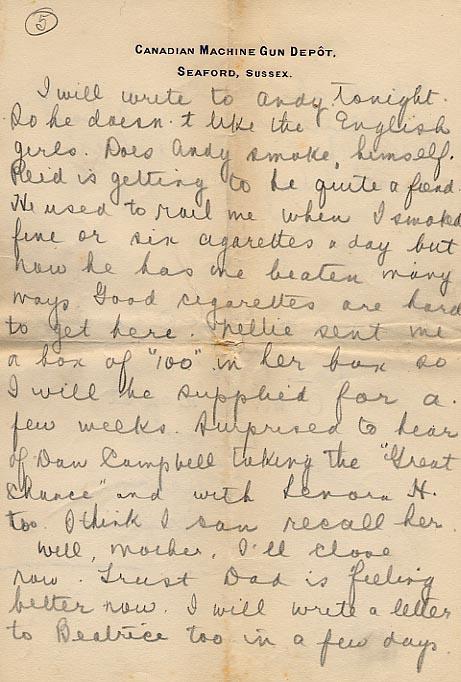 5
CANADIAN MACHINE GUN DEPÔT,
SEAFORD, SUSSEX.
I will write to Andy tonight.
So he doesn't like the English
girls. Does Andy smoke, himself.
Reid is getting to be quite a fiend.
He used to rail me when I smoked
five or six cigarettes a day but
now he has me beaten many
ways Good cigarettes are hard
to get here. Nellie sent me
a box of "100" in her box so
I will be supplied for a
few weeks. Surprised to hear
of Dan Campbell taking the "Great
Chance" and with Lenora H.
too. I think I can recall her.
Well, mother, I'll close
now. Trust Dad is feeling
better now. I will write a letter
to Beatrice too in a few days.